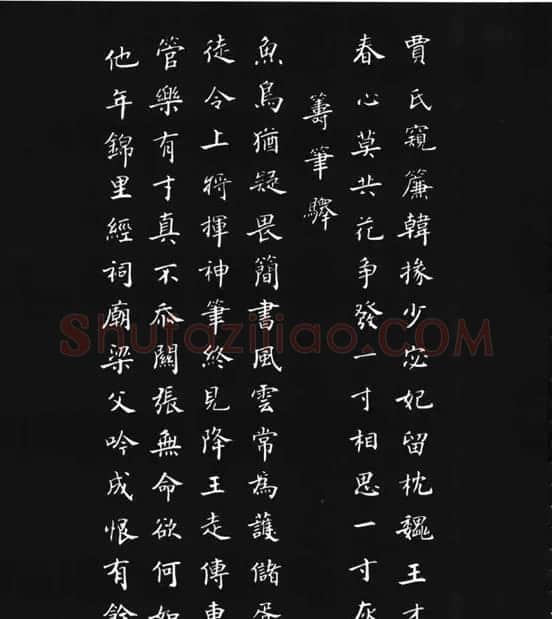 賈氏窺簾韓掾少宓妃留枕魏王才
春心莫共花争發一寸相思一寸灰
籌筆驛
魚鳥猶疑畏簡書風雲常為護儲胥
徒令上將揮神筆終見降王走傳車
管樂有才真不忝關張無命欲何如
他年錦里經祠廟梁父吟成恨有餘
Shufaziliao.COM